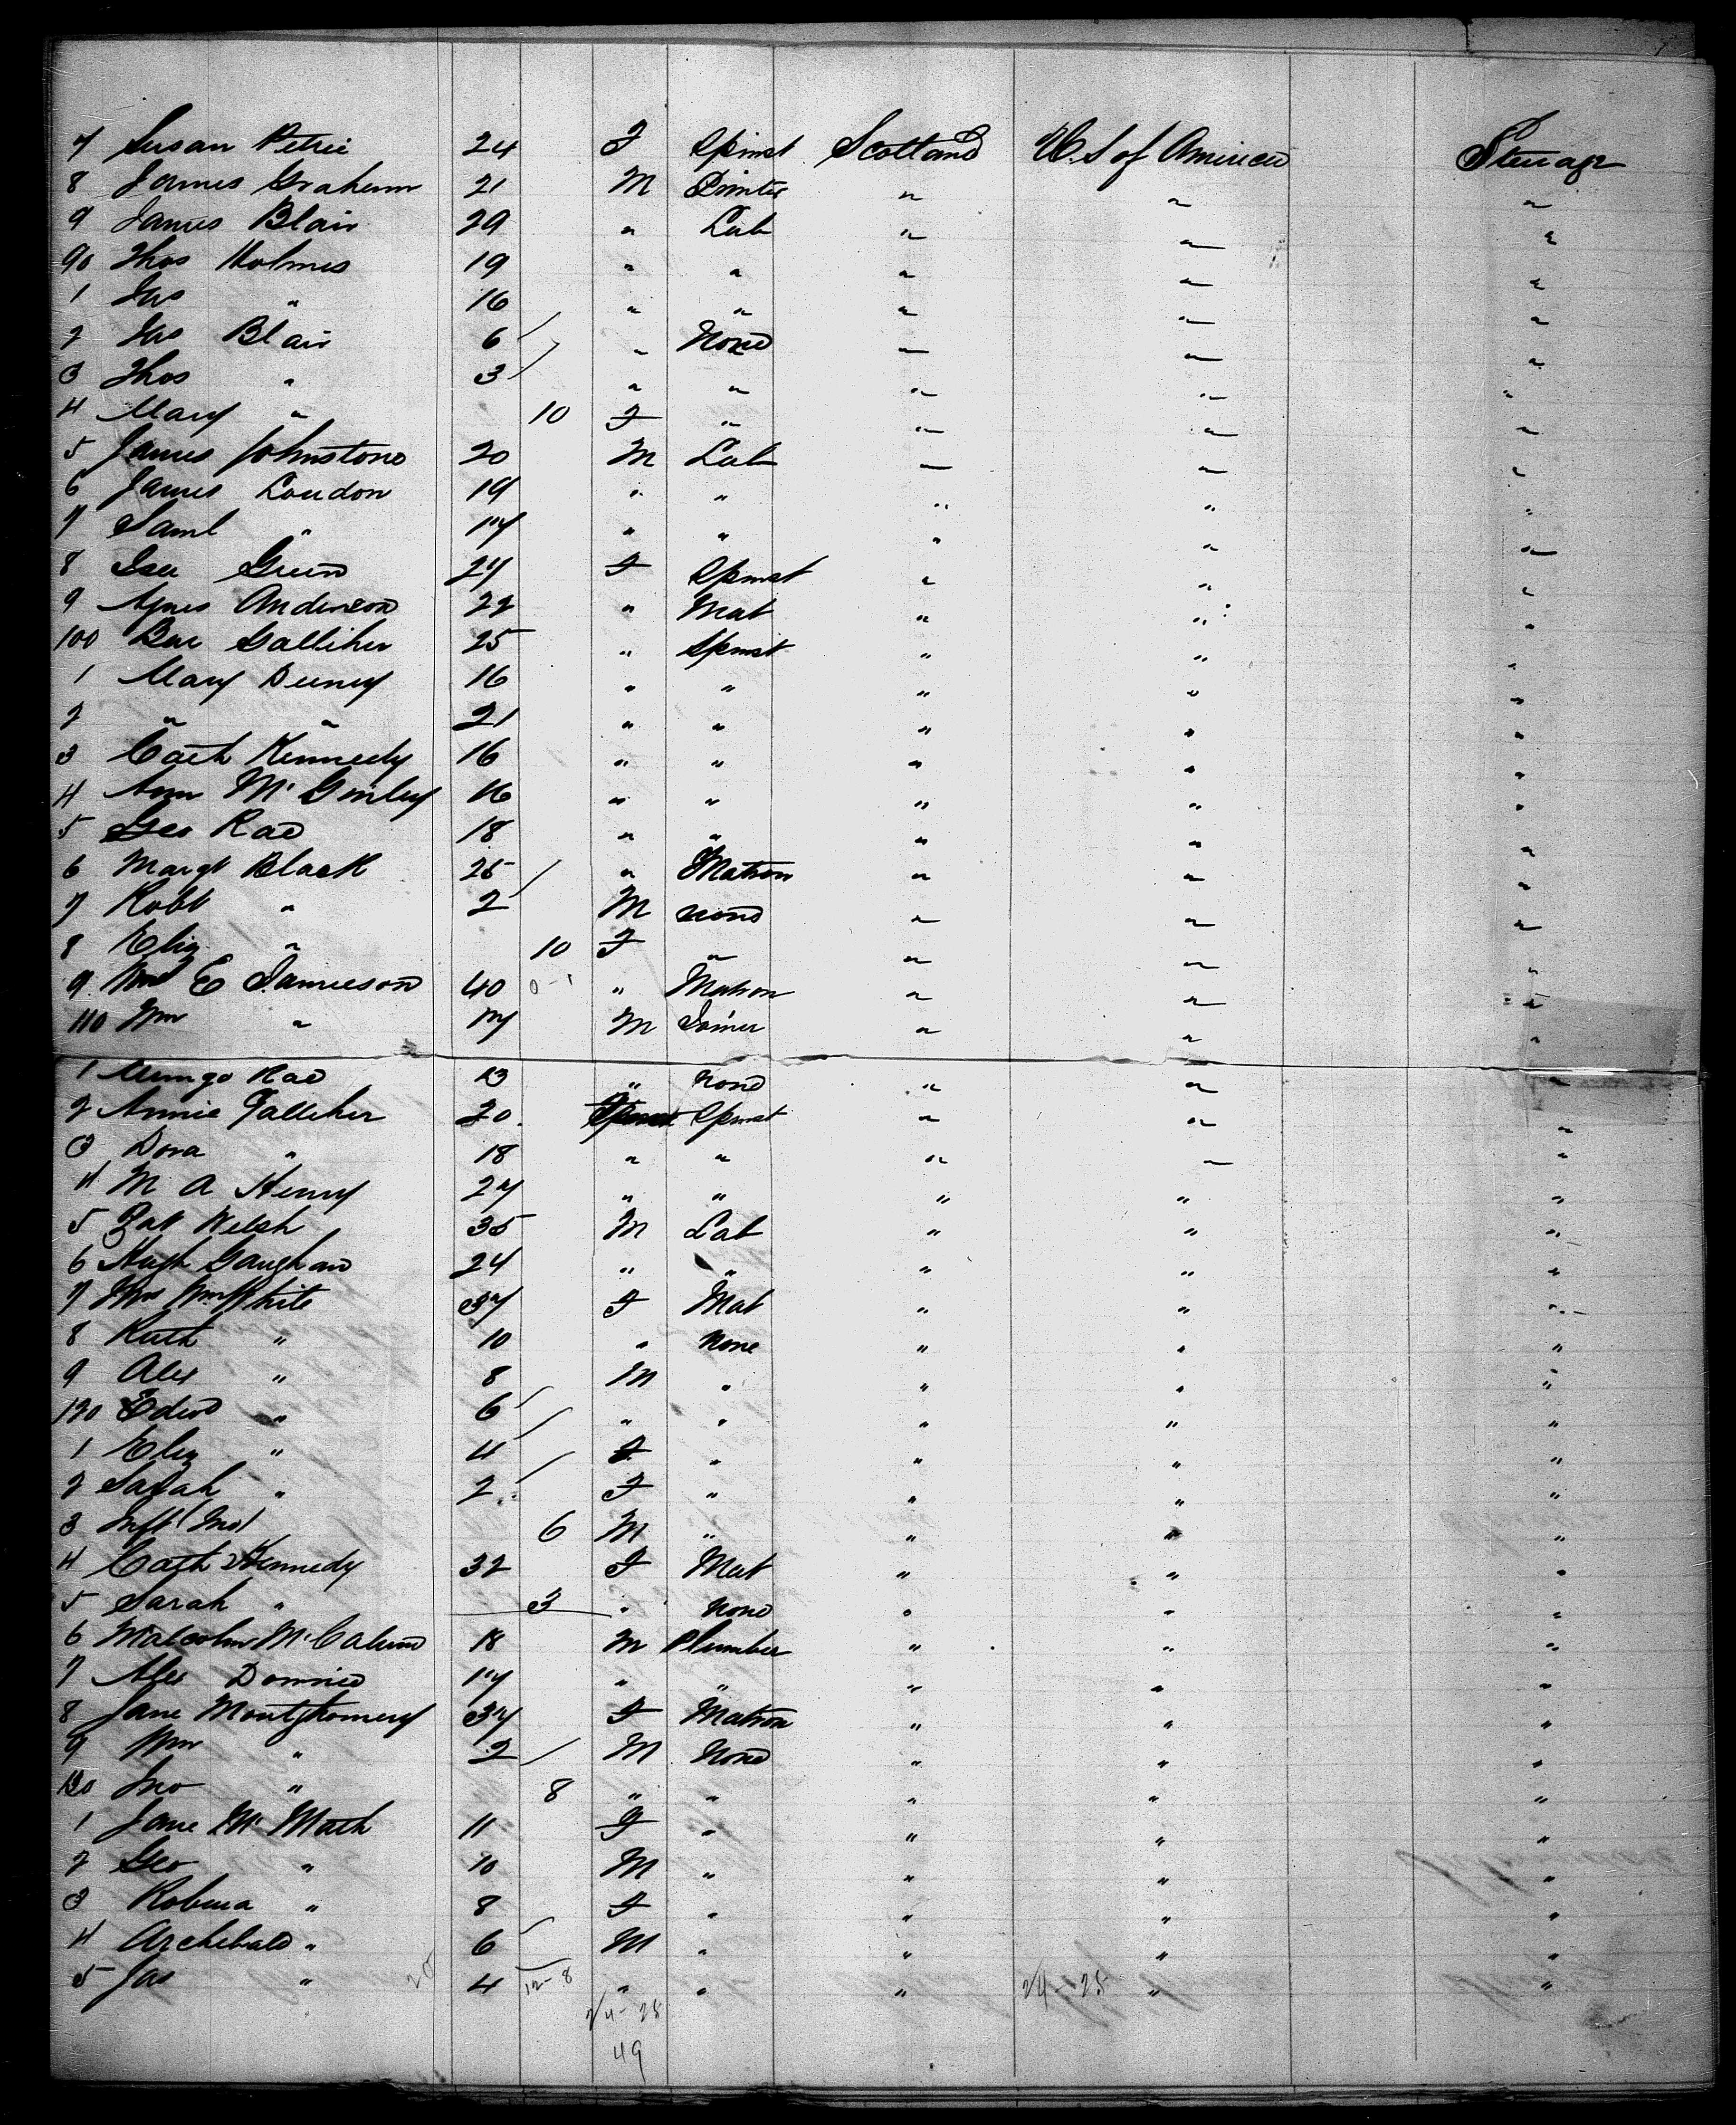 7 Susan Petrie 24 F Spinst Scotland U.S of America Steerage
8 James Graham 21 M Printer " " "
9 James Blair 29 " Lab " " "
90 Thos Holmes 19 " " " " "
1 Jas " 16 " " " " "
2 Jas Blair 6 " None " " "
3 Thos " 3 " " " " "
4 Mary " 10 F " " " "
5 James Johnstone 20 M Lab " " "
6 James Loudon 19 " " " " "
7 Saml " 17 " " " " "
8 Isa 27 F Spinst " " "
9 Agnes Anderson 22 " Mat " " "
100 Galliher 25 " Spinst " " "
1 Mary Deeney 16 " " " " "
2 " " 21 " " " " "
3 Cath Kennedy 16 " " " " "
4 Ann McGinley 16 " " " " "
5 Geo Rae 18 " " " " "
6 Margt Black 25 " Matron " " "
7 Robt " 2 M None " " "
8 Eliz " 10 F " " " "
9 Mrs E Jamieson 40 " Matron " " "
110 Wm " 17 M Joiner " " "
1 Mungo Rae 13 " None " " "
2 Annie Galliher 20 Spinst " " "
3 Dora " 18 " " " " "
4 M A Henry 27 " " " " "
5 Pat Welsh 35 M Lab " " "
6 Hugh Gaughan 24 " " " " "
7 Mrs Wm White 37 F Mat " " "
8 Ruth " 10 " None " " "
9 Alex " 8 M " " " "
120 Edwd " 6 " " " " "
1 Eliz " 4 F " " " "
2 Sarah " 2 F " " " "
3 Inft 6 M " " " "
4 Cath Kennedy 32 F Mat " " "
5 Sarah " 3 " None " " "
6 Malcolm McCalum 18 M Plumber " " "
7 Alex Downie 17 " " " " "
8 Jane Montgomery 37 F Matron " " "
9 Wm " 2 M None " " "
130 Jno " 8 " " " " "
1 Jane McMath 11 F " " " "
2 Geo " 10 M " " " "
3 Robina " 8 F " " " "
4 Archibald " 6 M " " " "
5 Jas " 20 4 12-8 " " " 24-25 " "
24-25
49